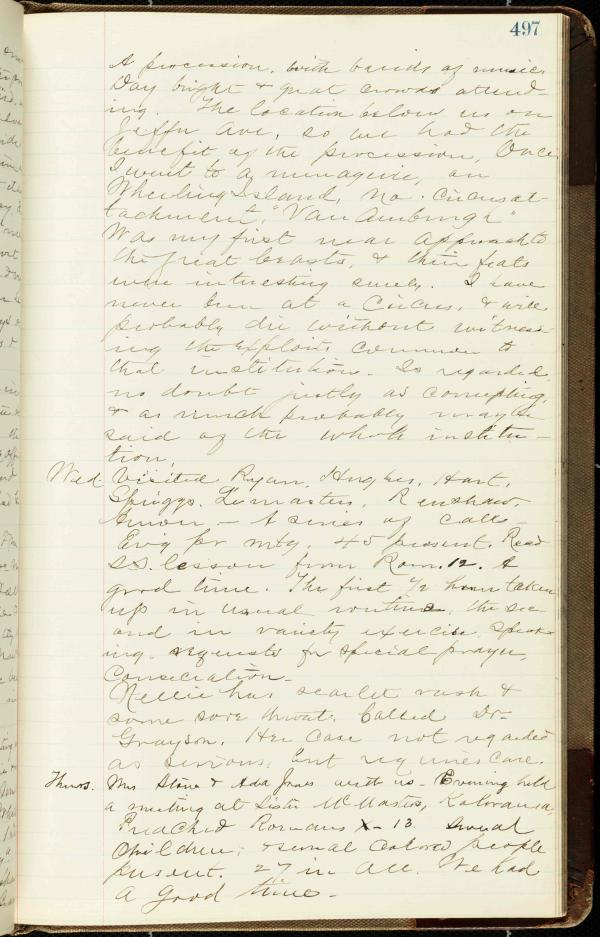 497
A procession, with bands of music
Day bright & great crowds attend-
ing. The location below us on
Jeffn Ave, so we had the
benefit of the procession, Once
I went to a menagerie, on
Wheeling Island, no circus at-
tachment, "Van Amburgh"
Was my first near approach to
the great beasts, & their feats
were interesting surely. I have
never been at a Circus, & will
probably die without witness-
ing the exploits common to
that institution. Is regarded
no doubt justly as corrupting,
& as much probably may be
said of the whole institu-
tion.
Wed. Visited Ryan, Hughes, Hart,
Spriggs, Lemasters, Renshaw,
A series of calls
Ev'g pr mtg. 45 present. Read
S.S. lesson from Rom. 12. A
good time. The first 1/2 hour taken
up in usual routine, the sec-
ond in variety exercise, speak-
ing, requests for special prayer,
Consecration-
Nellie has scarlet rash &
some sore throat. Called Dr-
Grayson. Her case not regarded
as serious, but requires care.
Thurs. Mrs Stone & Ada Jones with us. Evening held
a meeting at Sister McMasters,
Preached Romans X-13 Several
Children, & several Colored people
present. 27 in all. We had
a good time-